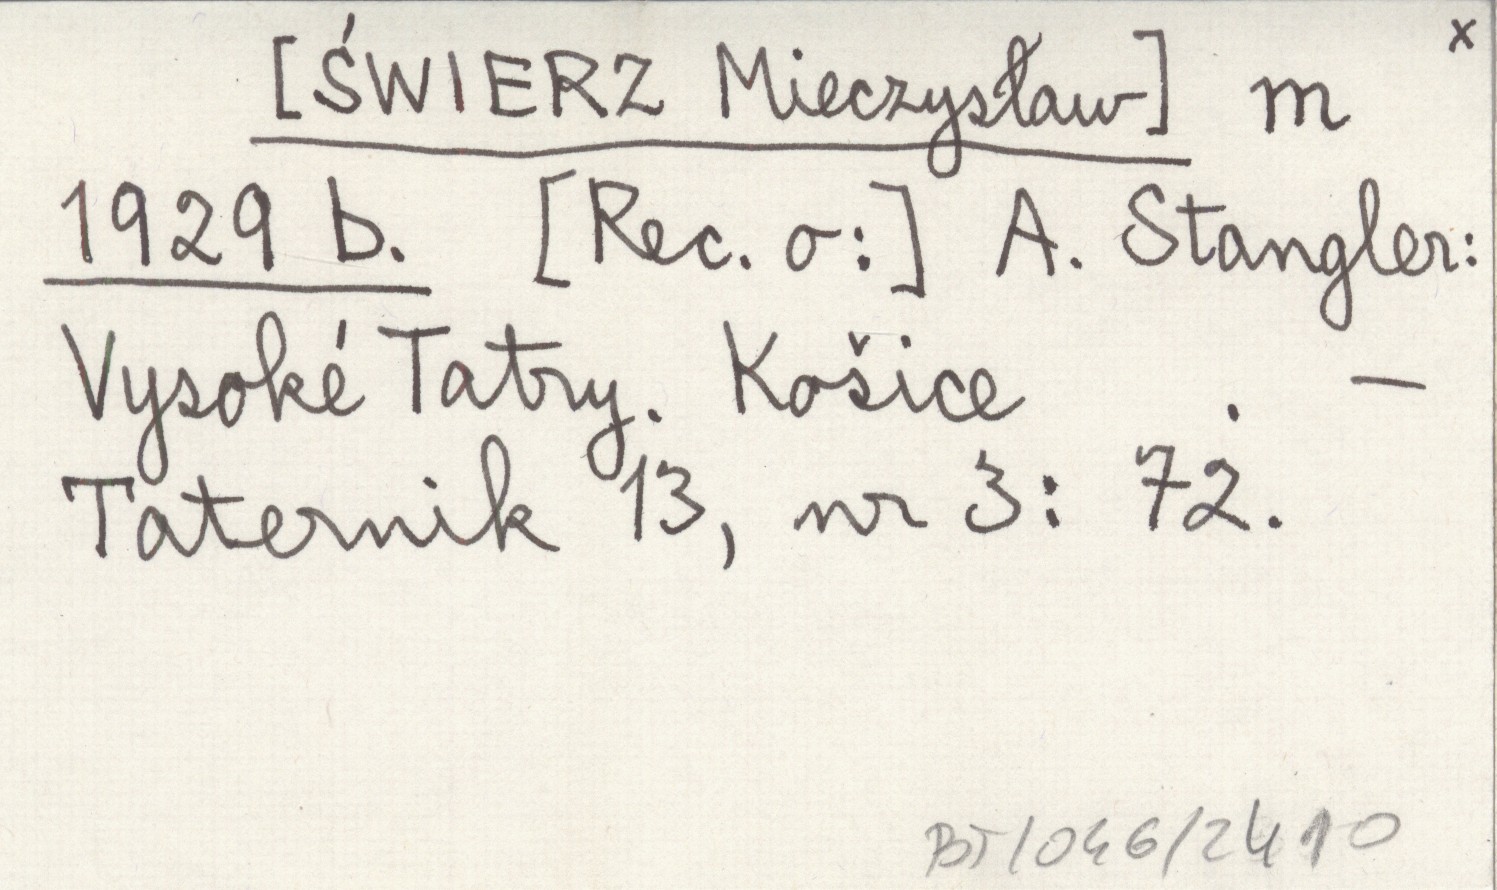 x
[ŚWIERZ Mieczysław] m
1929 b. [Rec. o:] A. Stangler:
Vysoké Tatry. Košice . —
Taternik 13, nr 3: 72.
BT/046/2410